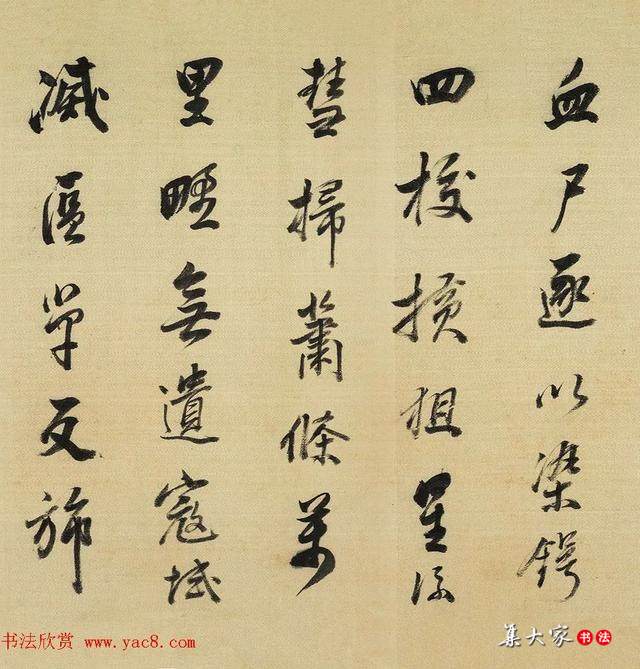 血尸逐以染鍔
四校橫徂星流
彗掃蕭條萬
里野無遺寇域
滅區單反旆
书法欣赏 www.yac8.com
集大家 书法